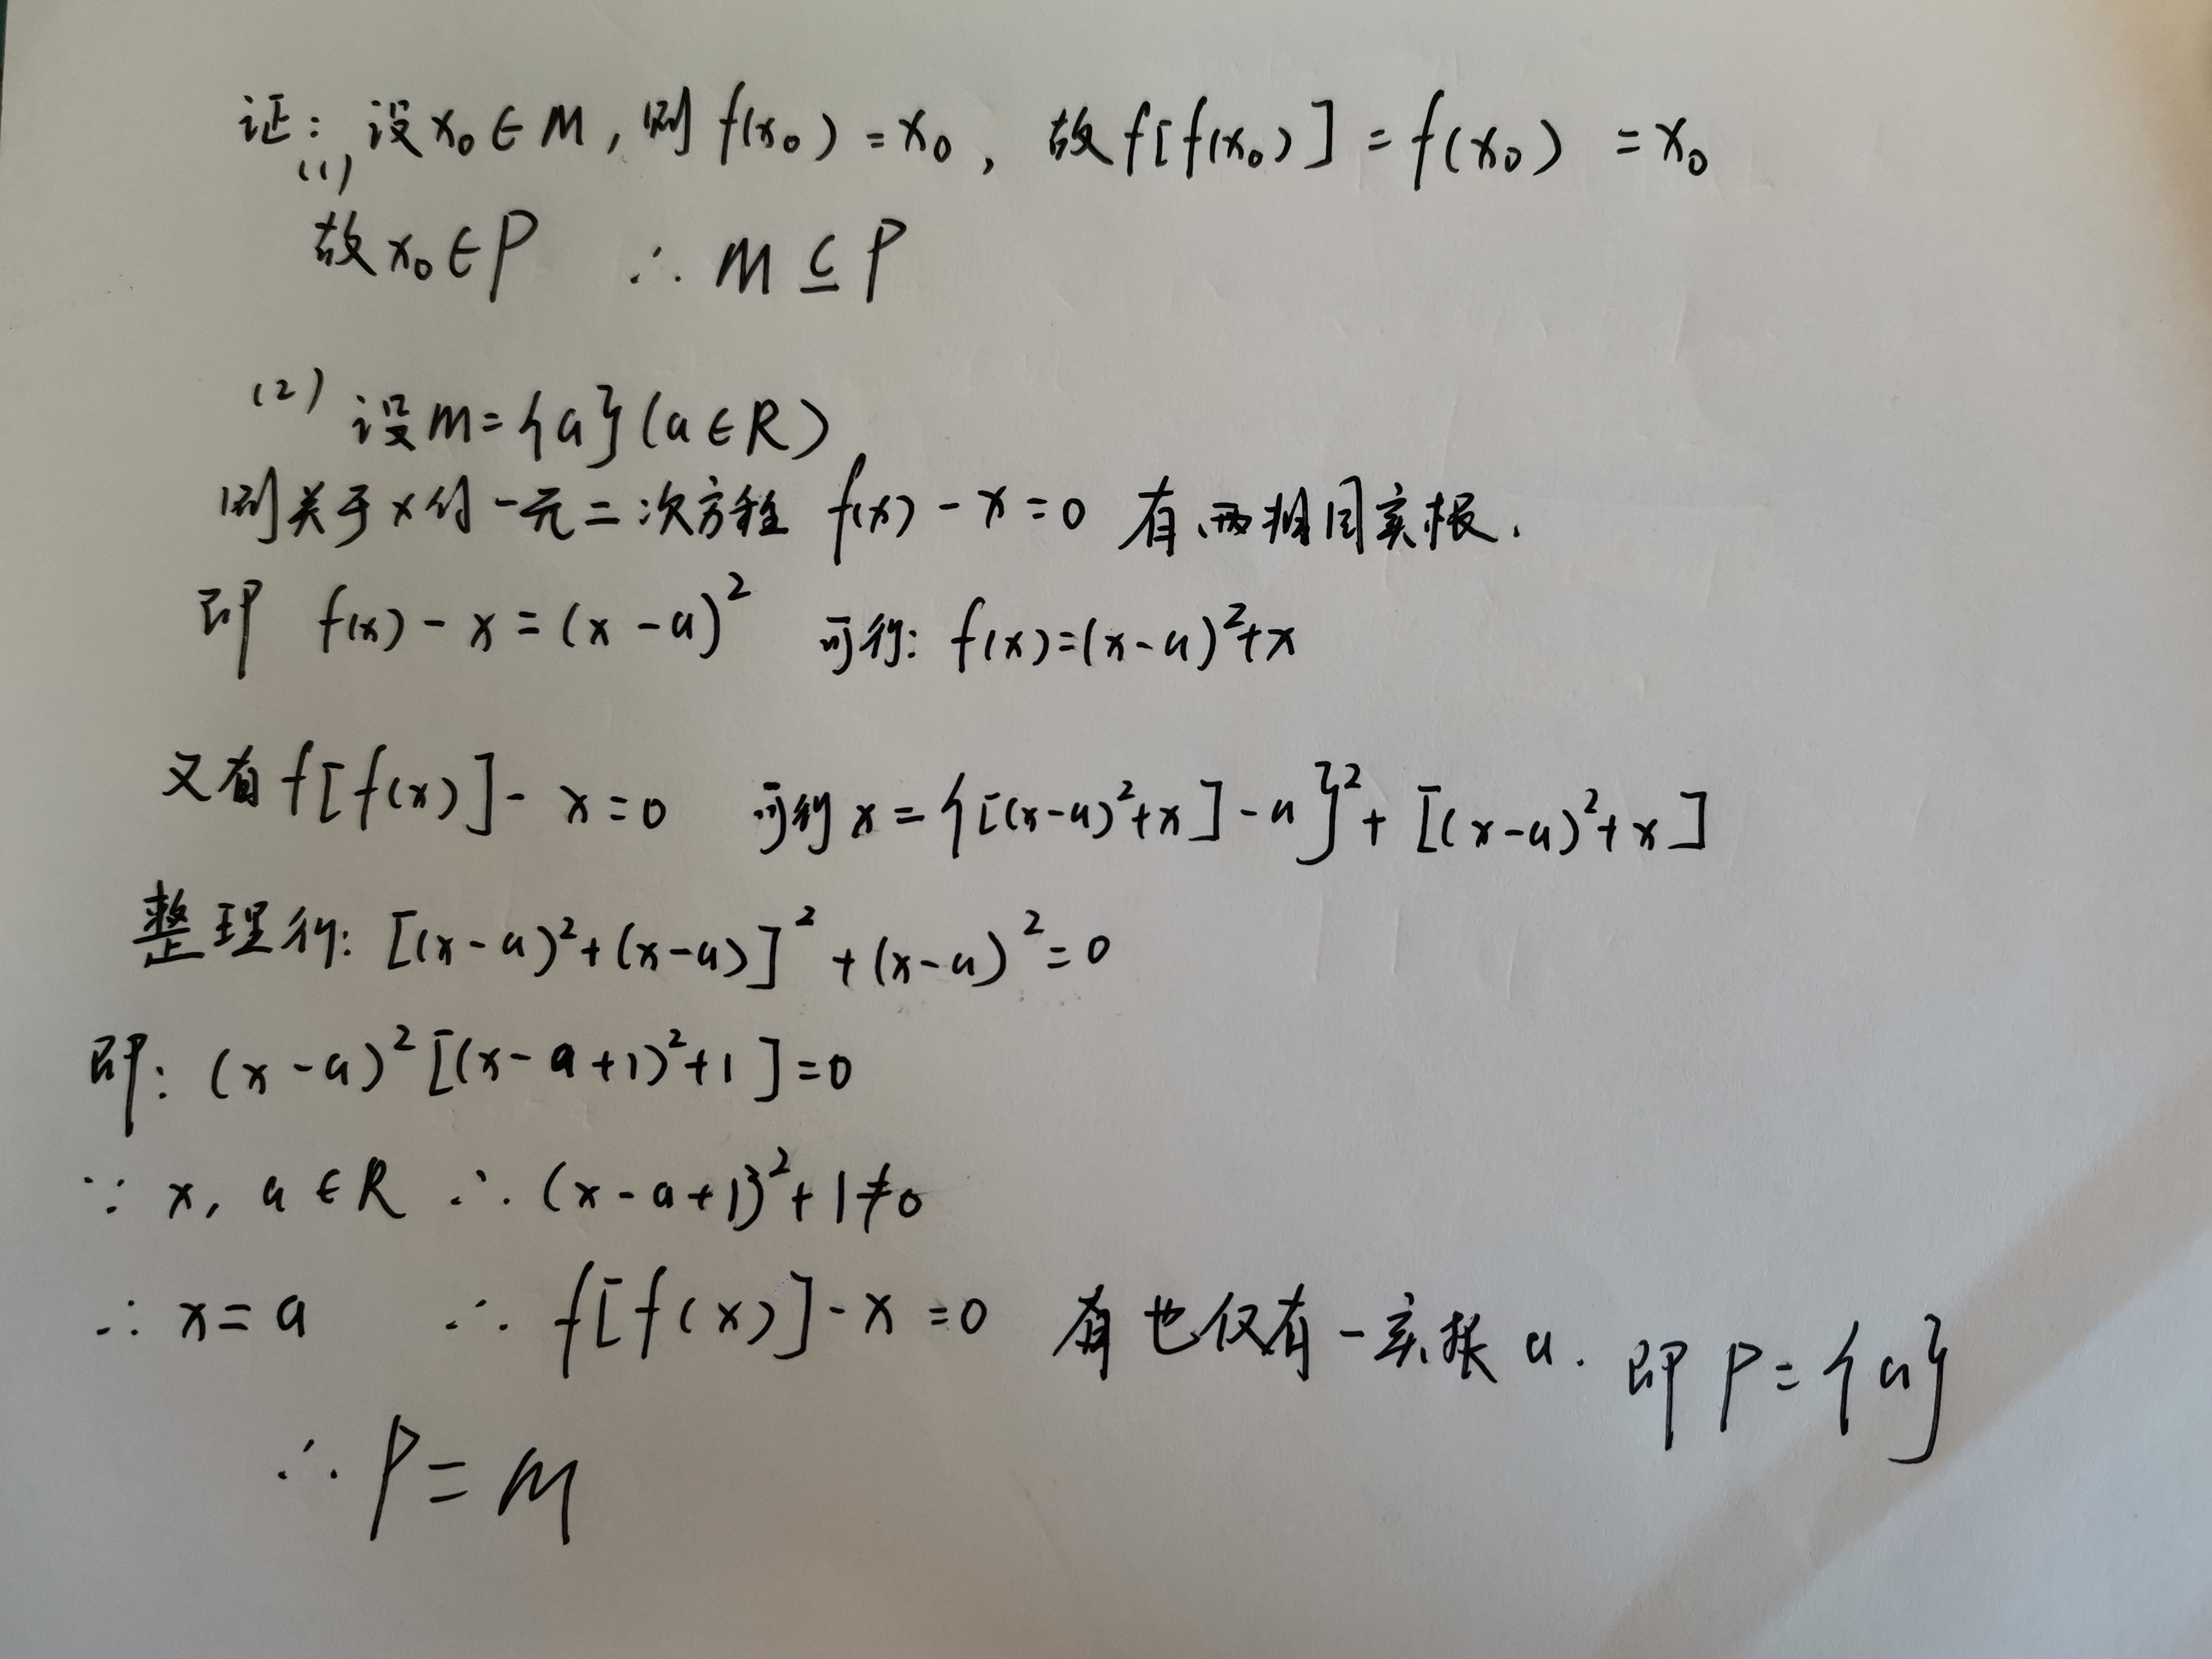 证: 设 x₀∈M, 则 f(x₀)=x₀, 故 f[f(x₀)]=f(x₀)=x₀
(1)
故 x₀∈P ∴ M⊆P
(2) 设 M={a}(a∈R)
则关于x的一元二次方程 f(x)-x=0 有两相同实根.
即 f(x)-x=(x-a)² 可得: f(x)=(x-a)²+x
又有 f[f(x)]-x=0 可得 x={[(x-a)²+x]-a}²+[(x-a)²+x]
整理得: [(x-a)²+(x-a)]²+(x-a)²=0
即: (x-a)²[(x-a+1)²+1]=0
∵ x, a∈R ∴ (x-a+1)²+1≠0
∴ x=a ∴ f[f(x)]-x=0 有也仅有一实根 a. 即 P={a}
∴ P=M